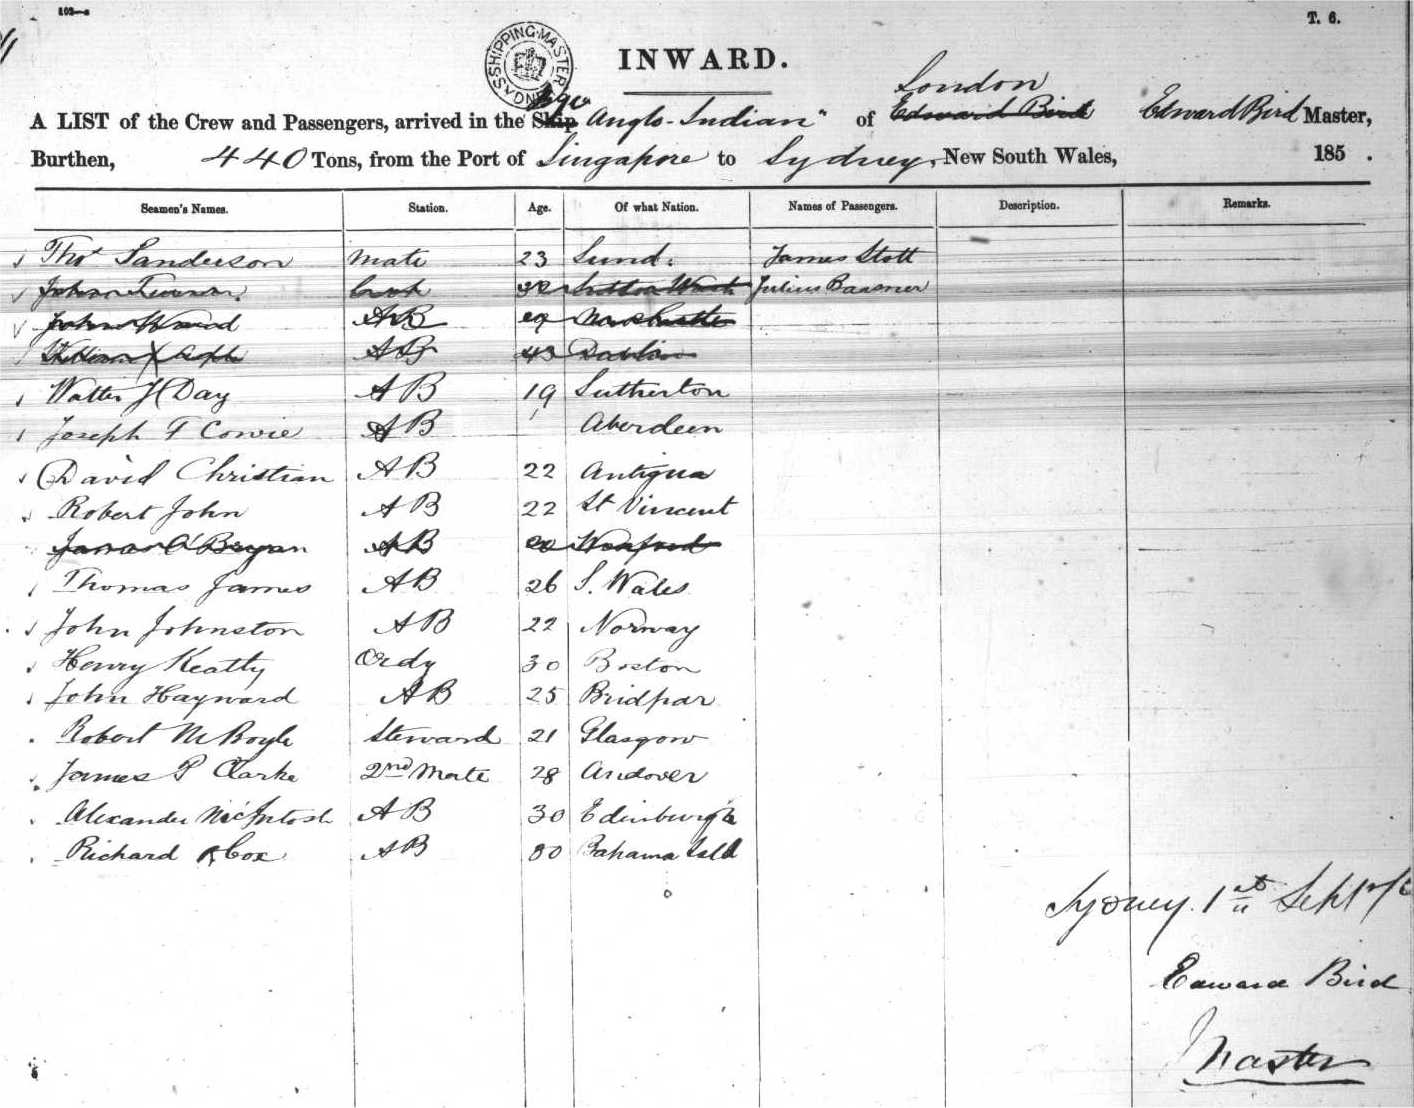 102—a
T. 6.
SHIPPING MASTER SYDNEY
INWARD.
London
A LIST of the Crew and Passengers, arrived in the Ship Bqe Anglo-Indian" of Edward Bird Edward Bird Master,
Burthen, 440 Tons, from the Port of Singapore to Sydney, New South Wales, 185 .
Seamen's Names. Station. Age. Of what Nation. Names of Passengers. Description. Remarks.
Thos Sanderson Mate 23 Sund. James Stott
John Cook 32 Julius
John Wood AB
William AB 43
Walter J Day AB 19 Sutherton
Joseph T Cowie AB Aberdeen
David Christian AB 22 Antigua
Robert John AB 22 St Vincent
James O'Bryan AB 20 Wexford
Thomas James AB 26 S. Wales
John Johnston AB 22 Norway
Henry Keatty Ordy 30 Boston
John Hayward AB 25 Bridpar
Robert McBoyle Steward 21 Glasgow
James P Clarke 2nd Mate 28 Andover
Alexander McIntosh AB 30 Edinburgh
Richard Cox AB 30 Bahama Isld
Sydney. 1st Sept
Edward Bird
Master